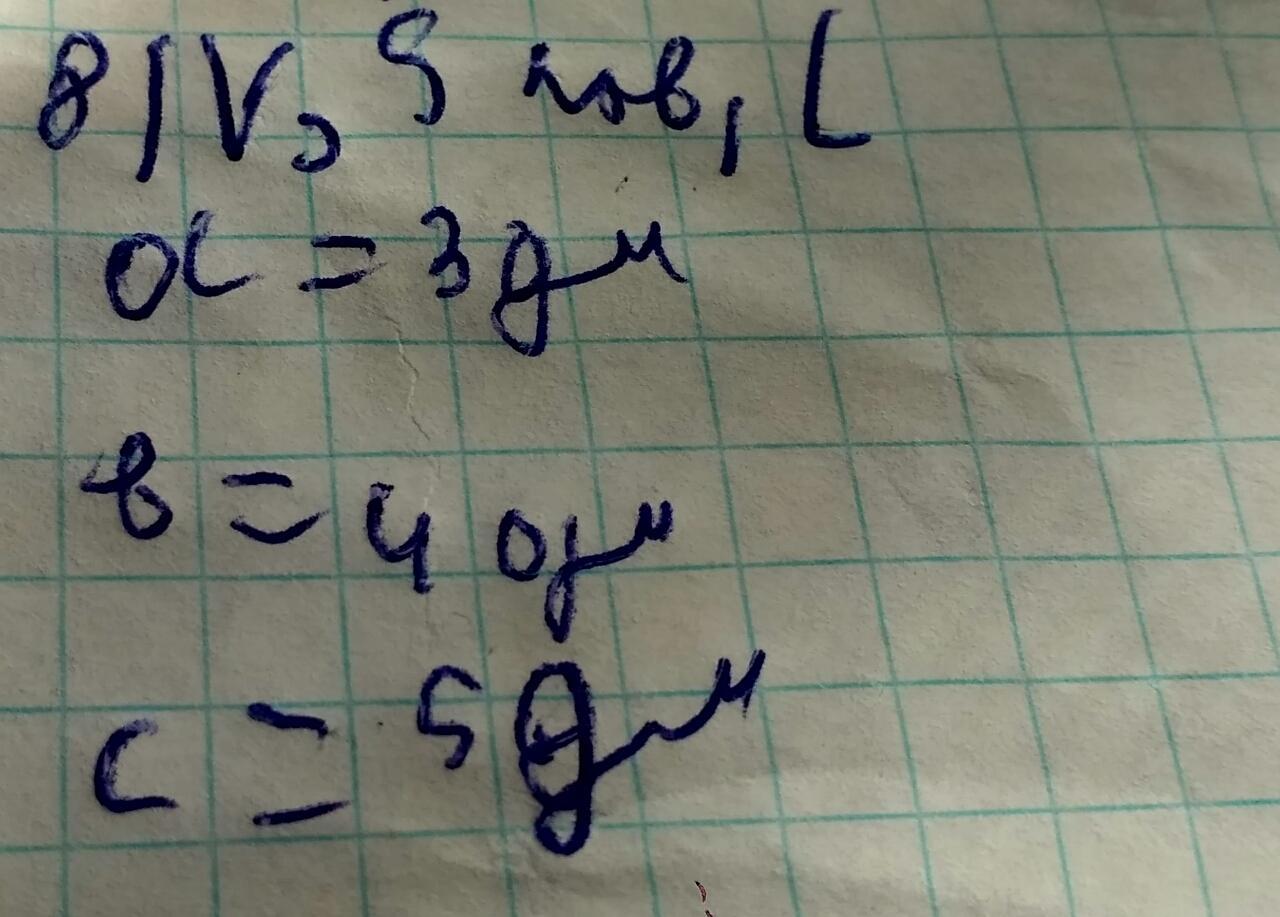 8) V, S пов, L
a = 3 дм
b = 4 дм
c = 5 дм